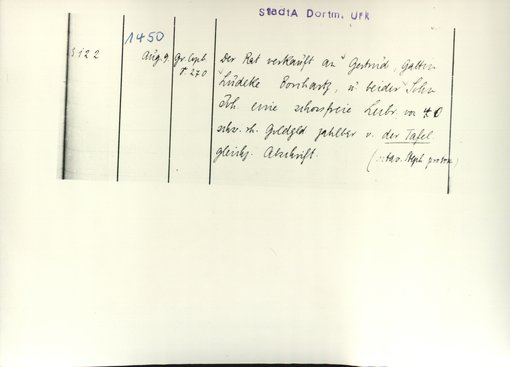 StadtA Dortm. Urk
1450
S 122 Aug. 9 Gr. Cop. b Der Rat verkauft an Gertrud, Gattin
270 Lüdeke Borchartz, u beider Sohn
Joh eine schossfreie Leibr. von 40
schw. rh. Goldgld zahlbar v. der Tafel
gleichz. Abschrift.